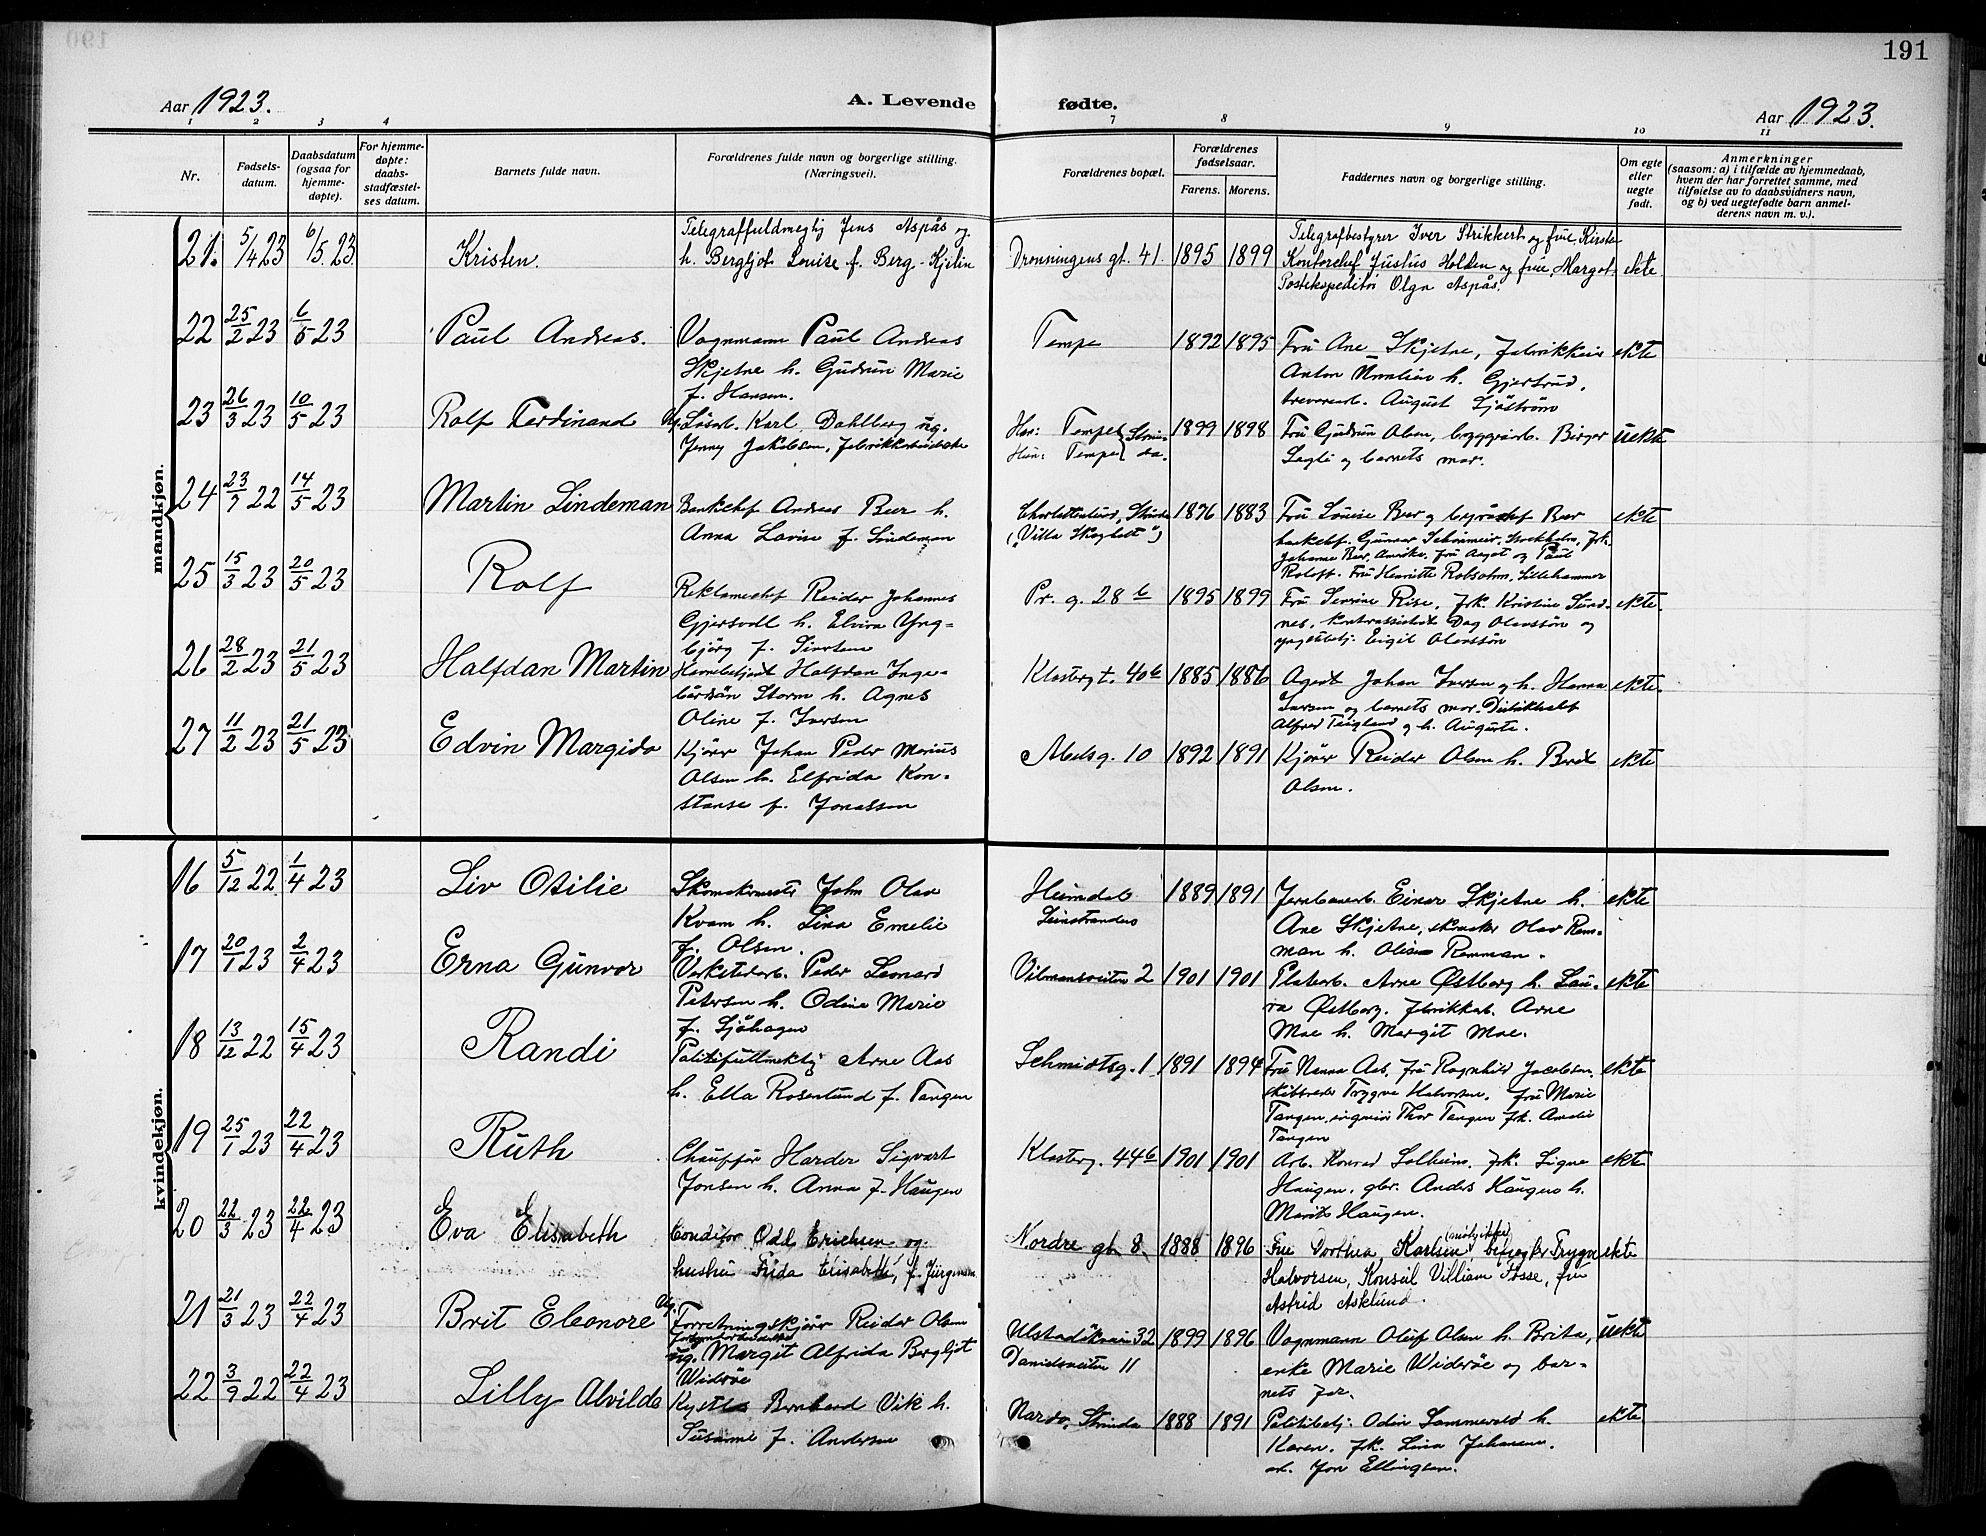 191
Aar 1923.
A. Levende fødte.
Aar 1923.
1 2 3 4 7 8 9 10 11
Nr.
Fødsels-
datum.
Daabsdatum
(ogsaa for
hjemme-
døpte).
For hjemme-
døpte:
daabs-
stadfæstel-
ses datum.
Barnets fulde navn.
Forældrenes fulde navn og borgerlige stilling.
(Næringsvei).
Forældrenes bopæl.
Forældrenes
fødselsaar.
Farens. Morens.
Faddernes navn og borgerlige stilling.
Om egte
eller
uegte
født.
Anmerkninger
(saasom: a) i tilfælde av hjemmedaab,
hvem der har forrettet samme, med
tilføielse av to daabsvidners navn,
og b) ved uegtefødte barn anmel-
derens navn m. v.).
mandkjøn.
21. 5/4 23 6/5 23 Kristen.
Telegraffuldmegtig Jens Aspås og
h. Bergljot Louise f. Berg-Kjelin
Dronningens gt. 41. 1895 1899
Telegrafbestyrer Iver Strikkert og frue, Kirsten
Kontorchef Justus Holden og frue, Margot
Postekspeditør Olga Aspås.
ekte
22 25/2 23 6/5 23 Paul Andreas.
Vognmann Paul Andreas
Skjetne h. Gudrun Marie
f. Hansen.
Tempe 1892 1895
Fru Ane Skjetne, fabrikkeier
Anton h. Gjertrud,
August Sjöström
ekte
23 26/3 23 10/5 23 Rolf Ferdinand
Ug. Løsarb. Karl Dahlberg ug.
Jenny Jakobsen, fabrikkarbeiderske
Han: Tempe
Hun: Tempe
1899 1898
Fru Gudrun Olsen, byggearb. Birger
og barnets mor.
uekte
24 23/7 22 14/5 23 Martin Lindeman
Bankchef Andreas Beer h.
Anna Lovise f. Lindeman
Charlottenlund, Strinda
("Villa Skogtett")
1876 1883
Fru Louise Beer og Beer
bankchef. Gunnar Stockholm, frk.
Johanne Beer, fru Aagot og Paul
Roloff. Fru Henriette Robsahm, Lillehammer
ekte
25 15/3 23 20/5 23 Rolf
Reklamechef Reidar Johannes
Gjersvoll h. Elvira Yng-
björg f. Sivertsen
Pr. g. 28 b 1895 1899
Fru Rise, frk. Kristine Sund-
nes, Dag Olavssön og
Eigil Olavssön
ekte.
26 28/2 23 21/5 23 Halfdan Martin
Halfdan Inge-
Storm h. Agnes
Oline f. Iversen
Klosterg t. 40 b 1885 1886
Agent Johan Iversen og h. Hanna
Iversen og barnets mor. Distriktschef
Alfred og h. Auguste.
ekte.
27 11/2 23 21/5 23 Edvin Margido
Kjörer Johan Peder Marius
Olsen h. Elfrida Kon-
stanse f. Jonassen
Melsg. 10 1892 1891
Kjörer Reidar Olsen h. Berit
Olsen.
ekte
kvindekjøn.
16 5/12 22 1/4 23 Liv Otilie
Skomakermester John Olav
Kvam h. Lina Emelie
f. Olsen.
Heimdal
Leinstranden
1889 1891
Jernbanearb. Einar Skjetne h.
Ane Skjetne, skomaker Olav Rem-
man h. Remman.
ekte
17 20/1 23 2/4 23 Erna Gunvor
Verkstedarb. Peder Leonard
Petersen h. Odine Marie
f. Sjöhagen
Vibmannsveiten 2 1901 1901
Platearb. Arne Østborg h. Lau-
ra Østborg. fabrikkarb. Arne
Moe h. Margit Moe.
ekte
18 13/12 22 15/4 23 Randi
Politifullmektig Arne Aas
h. Ella Rosenlund f. Tangen
Schmidtsg. 1 1891 1894
Fru Nanna Aas, fru Ragnhild Jacobsen,
skibsreder Trygve Halvorsen, fru Marie
Tangen, ingeniör Thor Tangen frk. Amalie
Tangen
ekte
19 25/1 23 22/4 23 Ruth
Chauffør Harder Sigvart
Jonsen h. Anna f. Haugen
Klosterg. 44 b 1901 1901
Arb. Konrad Solheim, frk. Signe
Haugen, gbr. Anders Haugen h.
Marit Haugen.
ekte
20 22/3 23 22/4 23 Eva Elisabeth
Conditor Odd Erichsen og
hustru Frida Elisabeth, f. Jürgensen
Nordre gt. 8, 1888 1896
Frue Dorthea Karlsen, Trygve
Halvorsen, Konsul Villiam Fosse, frue
Astrid Asklund.
ekte
21 21/3 23 22/4 23 Brit Eleonore
Ug. Forretningskjörer Reidar Olsen
ug. Margit Alfrida Bergljot
Widröe
Ulstadlökveien 32
Danielsveiten 11
1899 1896
Vognmann Oluf Olsen h. Brita,
enke Marie Wideröe og bar-
nets far.
uekte
22 3/9 22 22/4 23 Lilly Alvilda
Bernhard Vik h.
Susanne f. Andersen
Nardo, Strinda 1888 1891
Politibetj. Odin Sommervold h.
Karen. frk. Lina Johansen.
arb. Jon Ellingsen.
ekte